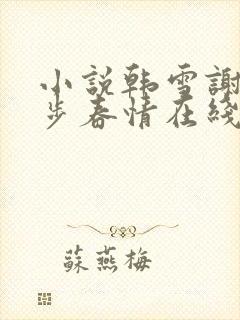 小說韩雪謝
步春情在綫
蘇燕梅